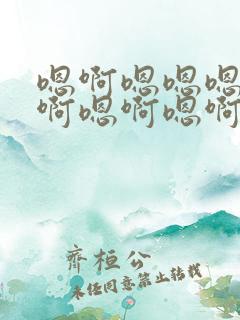 嗯啊嗯嗯嗯
啊嗯啊嗯啊
齊桓公
未经同意禁止转载